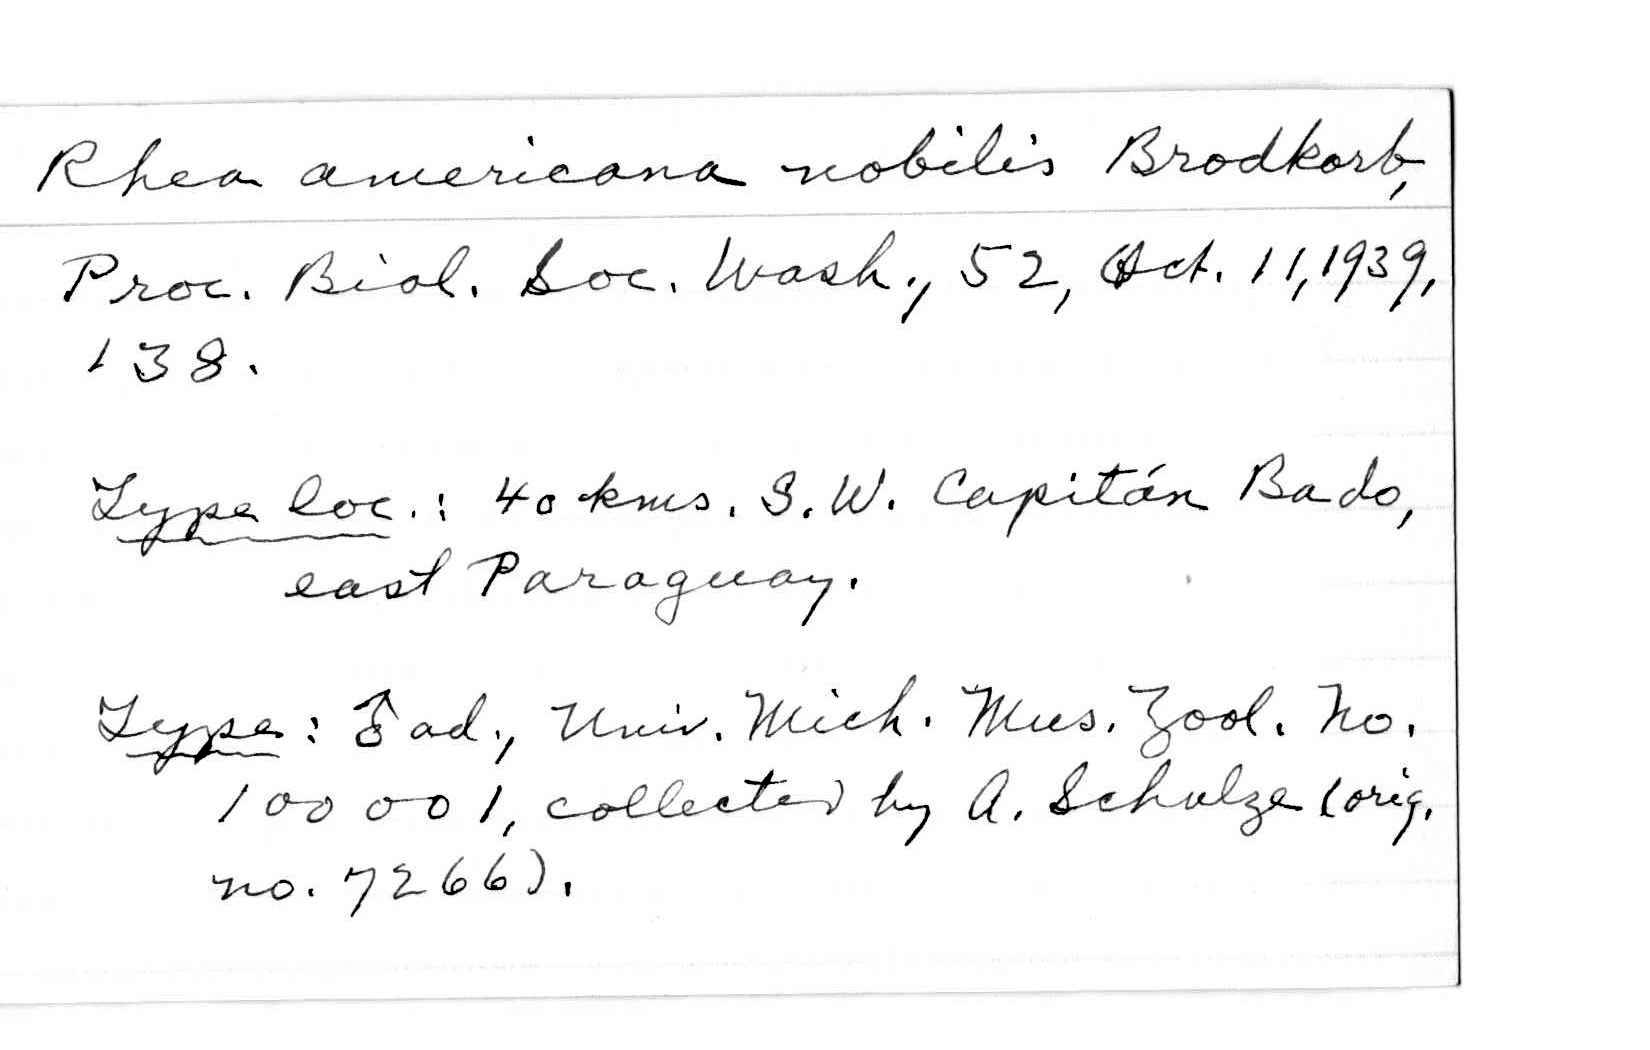 Rhea americana nobilis Brodkorb,
Proc. Biol. Soc. Wash., 52, Oct. 11, 1939,
138.
Type loc.: 40 kms. S.W. Capitán Bado,
east Paraguay.
Type: ♂ ad., Univ. Mich. Mus. Zool. No.
100001, collected by A. Schulze (orig.
no. 7266).